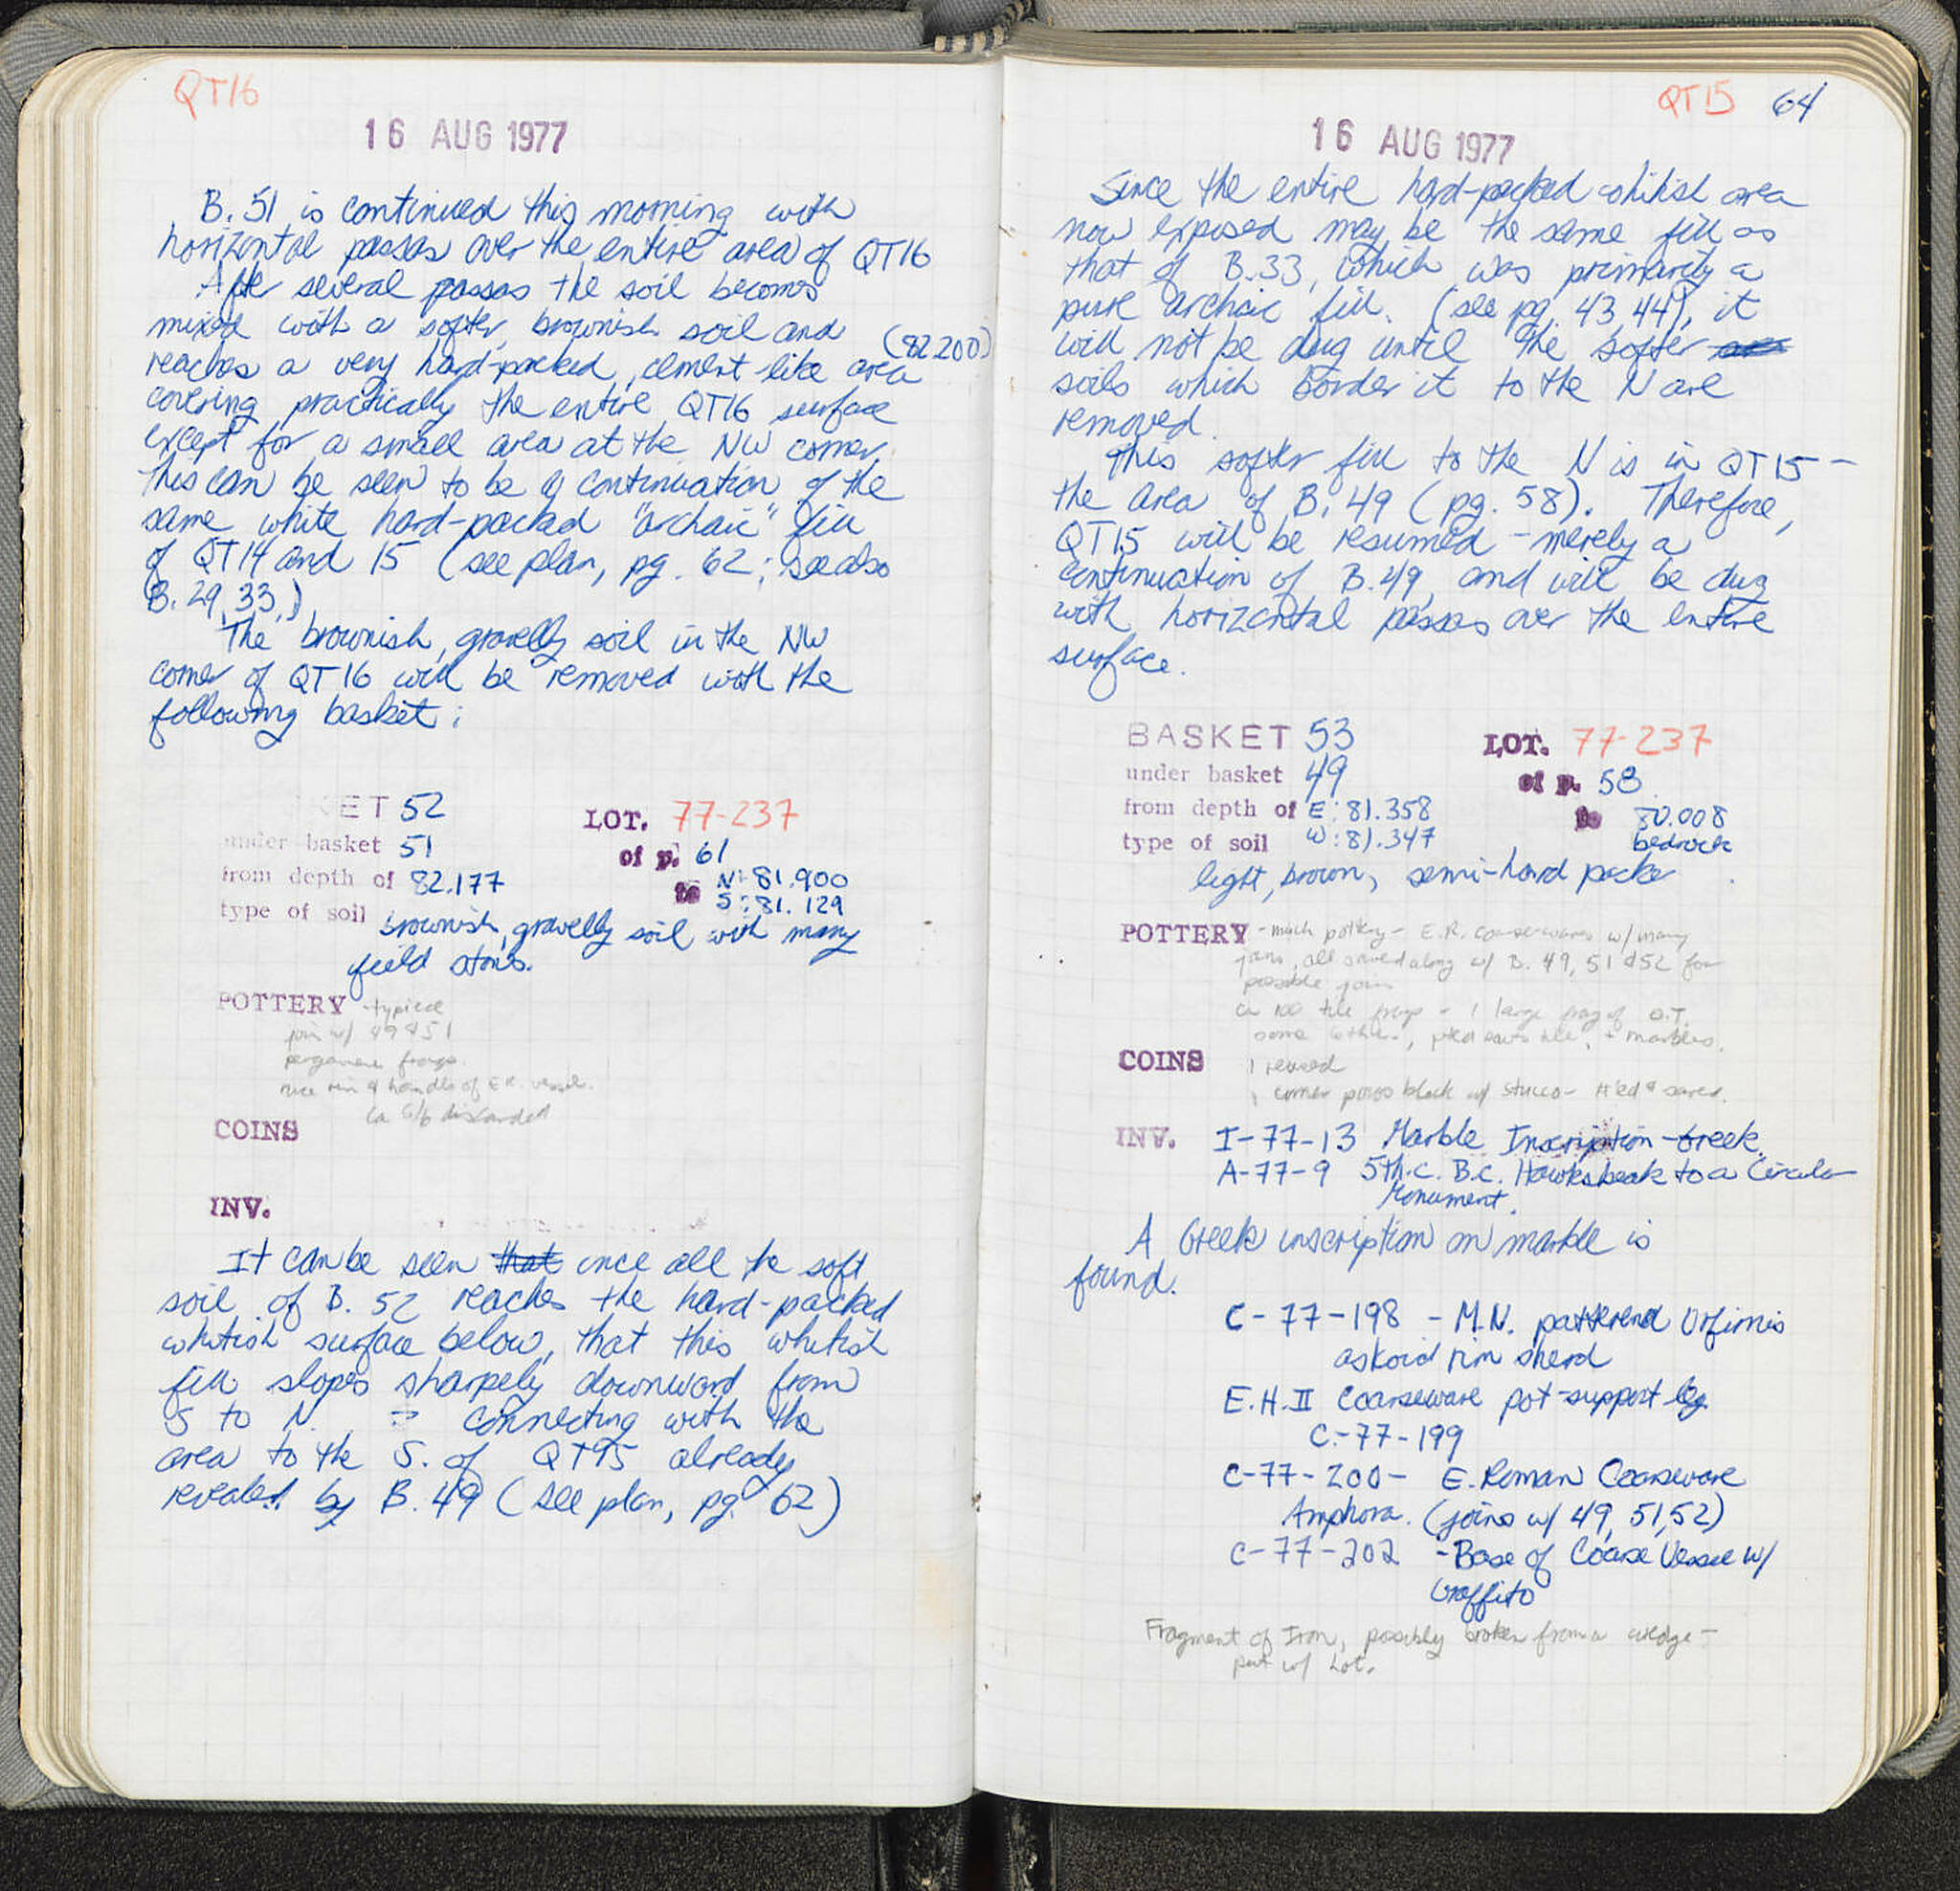 QT16
16 AUG 1977
B. 51 is continued this morning with
horizontal passes over the entire area of QT16
After several passes the soil becomes
mixed with a softer, brownish soil and
(82.200)
reaches a very hard-packed, cement like area
covering practically the entire QT16 surface
except for a small area at the NW corner.
This can be seen to be a continuation of the
same white hard-packed "archaic" fill
of QT14 and 15 (see plan, pg. 62; see also
B. 29, 33.)
The brownish, gravelly soil in the NW
corner of QT16 will be removed with the
following basket:
KET 52
LOT. 77-237
under basket 51
of p. 61
from depth of 82.177
to N: 81.900
S: 81.129
type of soil brownish, gravelly soil with many
field stones.
POTTERY - typical
join w/ 49 & 51
pergamene frags.
nice rim & handle of E.R. vessel.
ca 6 lb discarded
COINS
INV.
It can be seen that once all the soft
soil of B. 52 reaches the hard-packed
whitish surface below, that this whitish
fill slopes sharpely downward from
S to N. - connecting with the
area to the S. of QT15 already
revealed by B. 49 (see plan, pg. 62)
QT15 64
16 AUG 1977
Since the entire hard-packed whitish area
now exposed may be the same fill as
that of B.33, which was primarily a
pure archaic fill. (see pg. 43, 44), it
will not be dug until the softer
soils which border it to the N are
removed.
This softer fill to the N is in QT15 -
the area of B. 49 (pg. 58). Therefore,
QT15 will be resumed - merely a
continuation of B.49, and will be dug
with horizontal passes over the entire
surface.
BASKET 53
LOT. 77-237
under basket 49
of p. 58
from depth of E: 81.358
to 80.008
type of soil W: 81.347
bedrock
light, brown, semi-hard packed
POTTERY - much pottery - E.R. coarsewares w/ many
joins, all saved along w/ B. 49, 51 & 52 for
possible joins
ca 100 tile frags - 1 large frag of O.T.
some, + marbles.
COINS 1 reused
1 corner poros block w/ stucco - it'ed & saved.
INV. I-77-13 Marble Inscription - Greek
A-77-9 5th.c. B.C. Hawksbeak to a Circular
Monument.
A Greek inscription on marble is
found.
C-77-198 - M.N. patterend Urfirnis
askoid rim sherd
E.H. II Coarseware pot-support leg.
C-77-199
C-77-200 - E. Roman Coarseware
Amphora. (joins w/ 49, 51, 52)
C-77-202 - Base of Coarse Vessel w/
Graffito
Fragment of Iron, possibly broken from a wedge -
put w/ Lot.